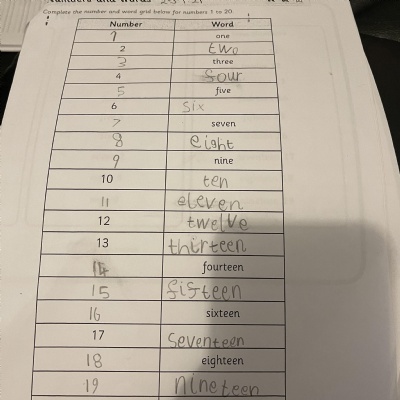 Numbers and Words
Complete the number and word grid below for numbers 1 to 20.
Number Word
1 one
2 two
3 three
4 four
5 five
6 six
7 seven
8 eight
9 nine
10 ten
11 eleven
12 twelve
13 thirteen
14 fourteen
15 fifteen
16 sixteen
17 Seventeen
18 eighteen
19 nineteen